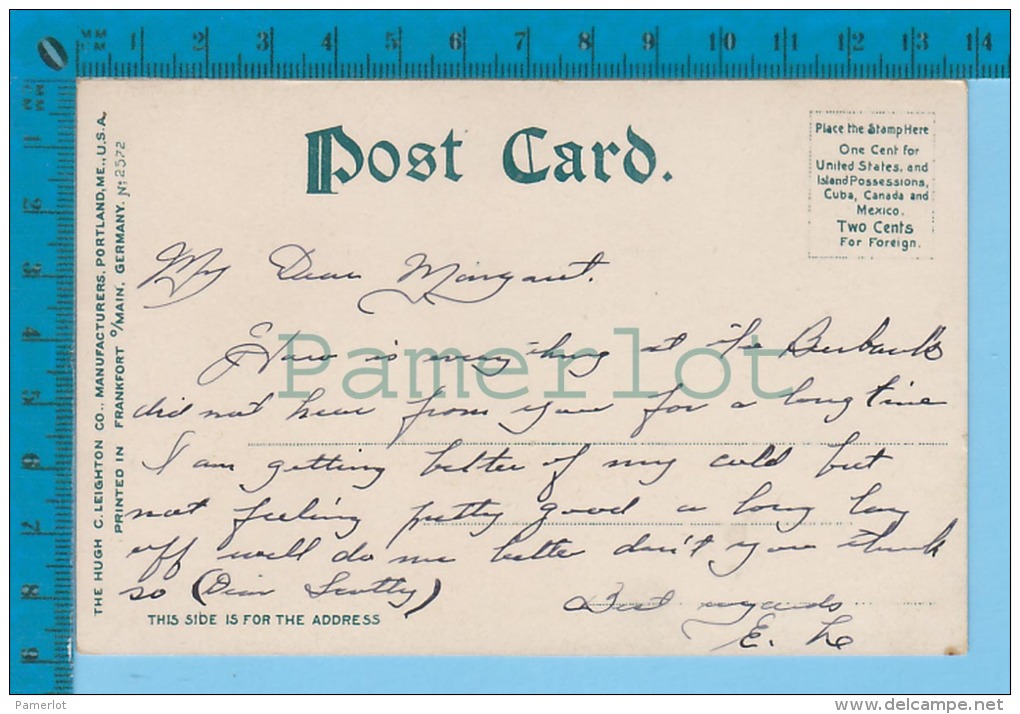 MM
CM
0 1 2 3 4 5 6 7 8 9 10 11 12 13 14
MM
1
2
3
4
5
6
7
8
9
THE HUGH C. LEIGHTON CO., MANUFACTURERS, PORTLAND, ME., U.S.A.
PRINTED IN FRANKFORT O/MAIN, GERMANY. No 2572
Post Card.
Place the Stamp Here
One Cent for
United States, and
Island Possessions,
Cuba, Canada and
Mexico.
Two Cents
For Foreign.
My Dear Margaret.
How is everything at the Burbank's
did not hear from you for a long time
I am getting better of my cold but
not feeling pretty good a long lay
off will do me better don't you think
so (Dear Scotty)
Best regards
E. Le
THIS SIDE IS FOR THE ADDRESS
Pamerlot
Pamerlot
www.delcampe.net